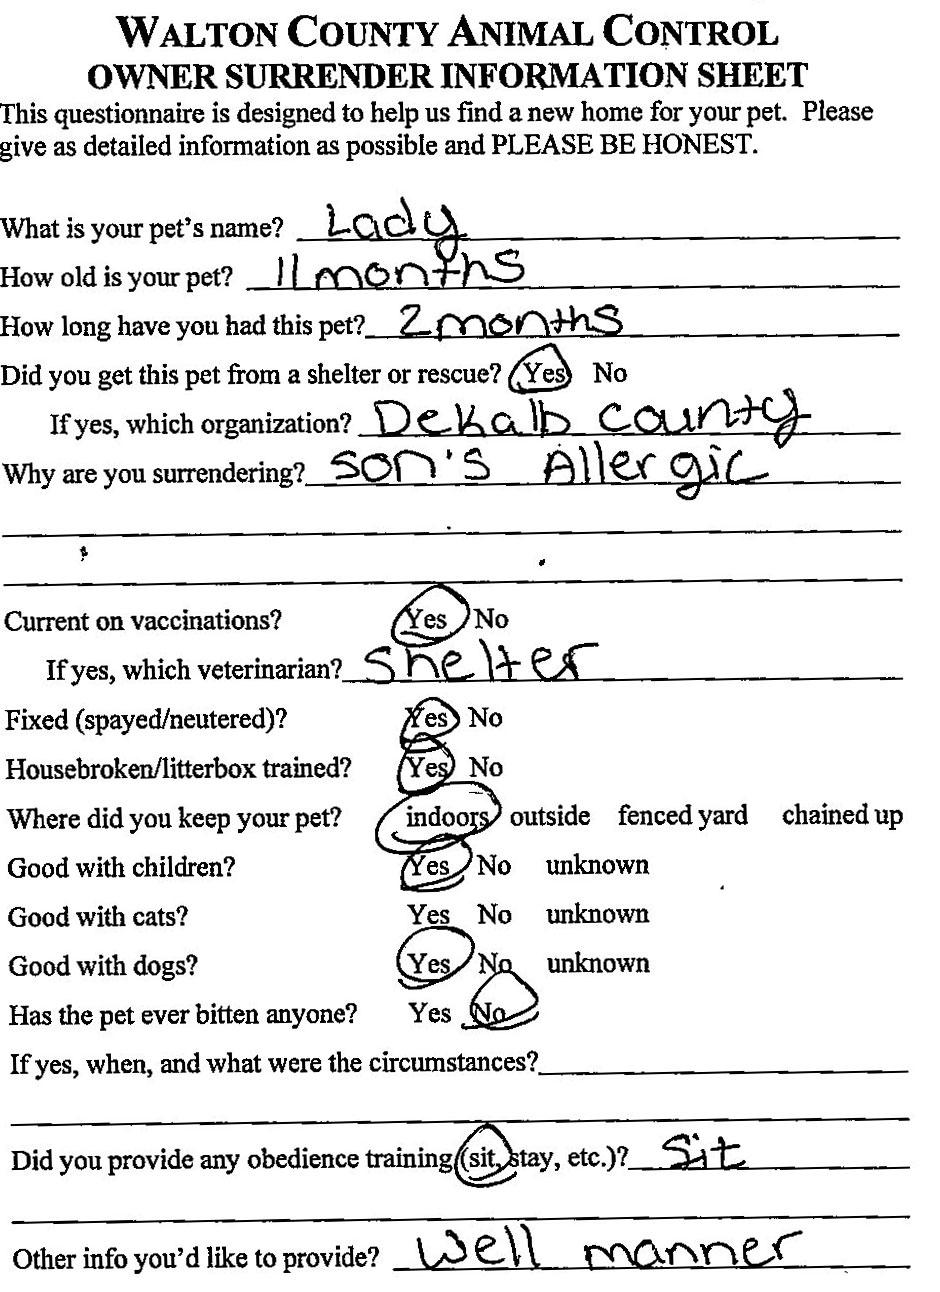 WALTON COUNTY ANIMAL CONTROL
OWNER SURRENDER INFORMATION SHEET
This questionnaire is designed to help us find a new home for your pet. Please
give as detailed information as possible and PLEASE BE HONEST.
What is your pet's name? Lady
How old is your pet? 11 months
How long have you had this pet? 2 months
Did you get this pet from a shelter or rescue? Yes No
If yes, which organization? Dekalb county
Why are you surrendering? son's Allergic
Current on vaccinations? Yes No
If yes, which veterinarian? Shelter
Fixed (spayed/neutered)? Yes No
Housebroken/litterbox trained? Yes No
Where did you keep your pet? indoors outside fenced yard chained up
Good with children? Yes No unknown
Good with cats? Yes No unknown
Good with dogs? Yes No unknown
Has the pet ever bitten anyone? Yes No
If yes, when, and what were the circumstances?
Did you provide any obedience training (sit, stay, etc.)? Sit
Other info you'd like to provide? Well manner